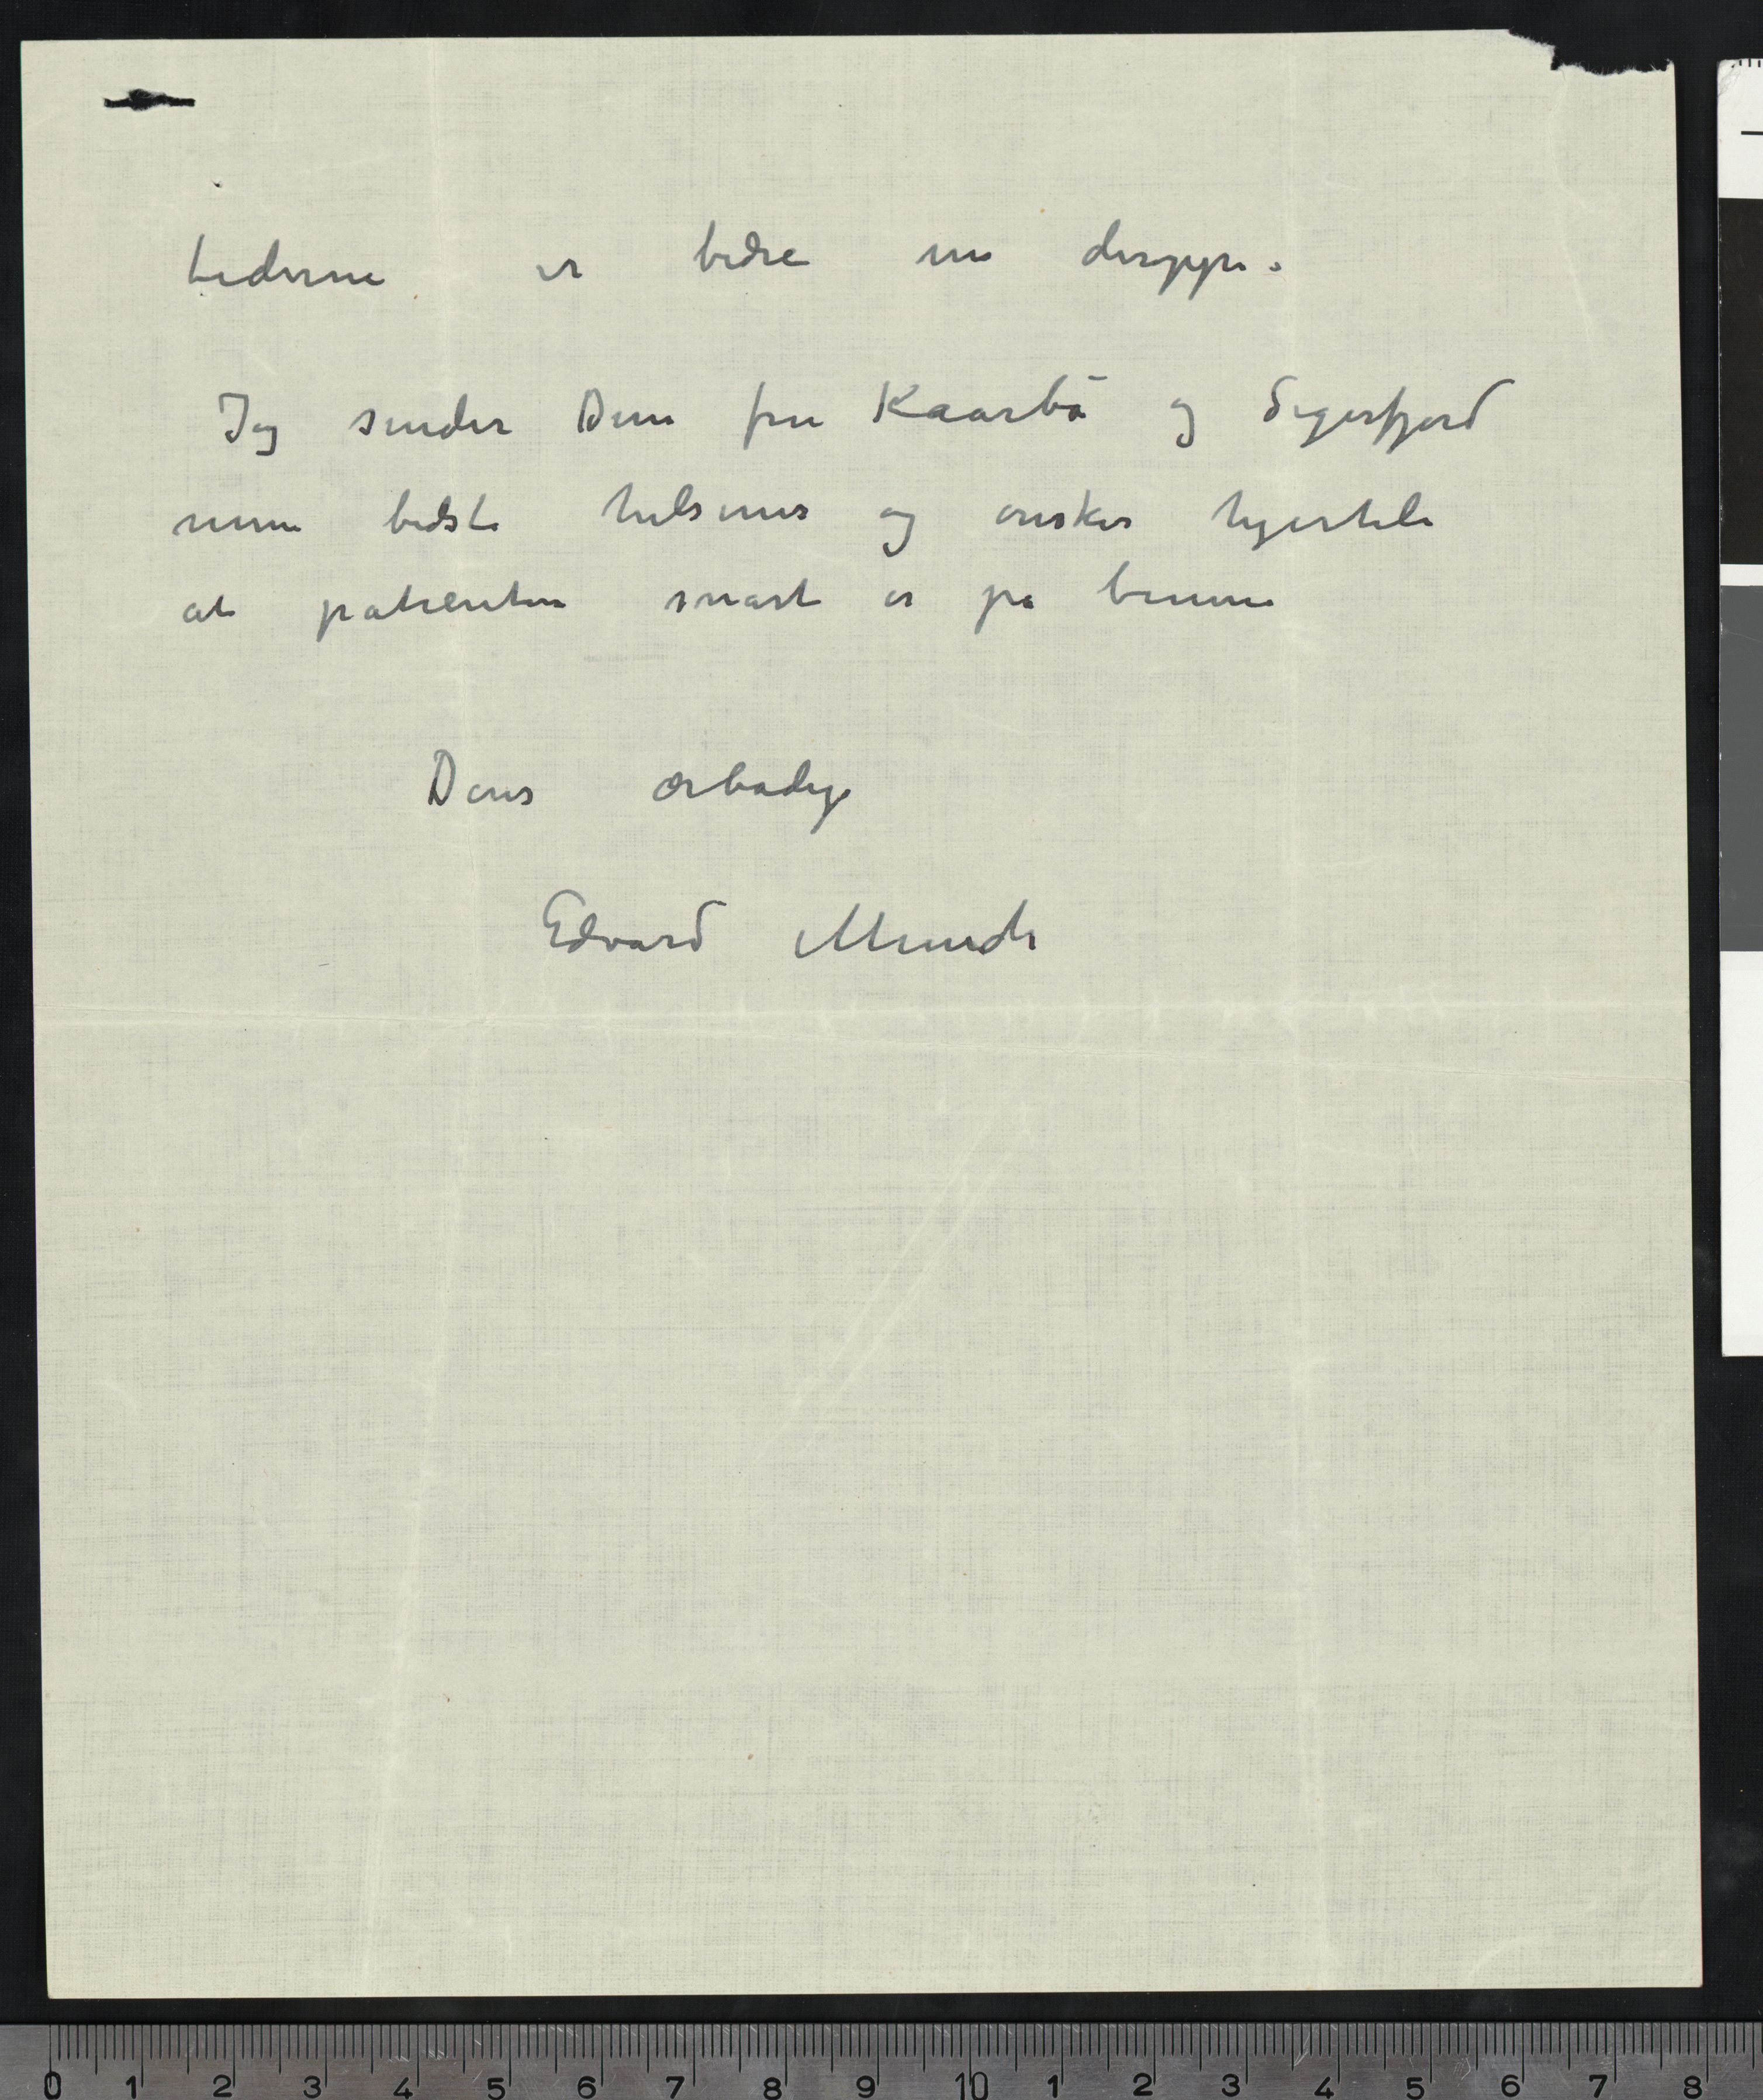 tiderne er bedre nu deroppe.
Jeg sender Dem fru Kaarbö og Sigerfjord
mine bedste hilsener og ønsker hjerteli
at patienten snart er på benene
Deres ærbødige
Edvard Munch
0 1 2 3 4 5 6 7 8 9 10 1 2 3 4 5 6 7 8